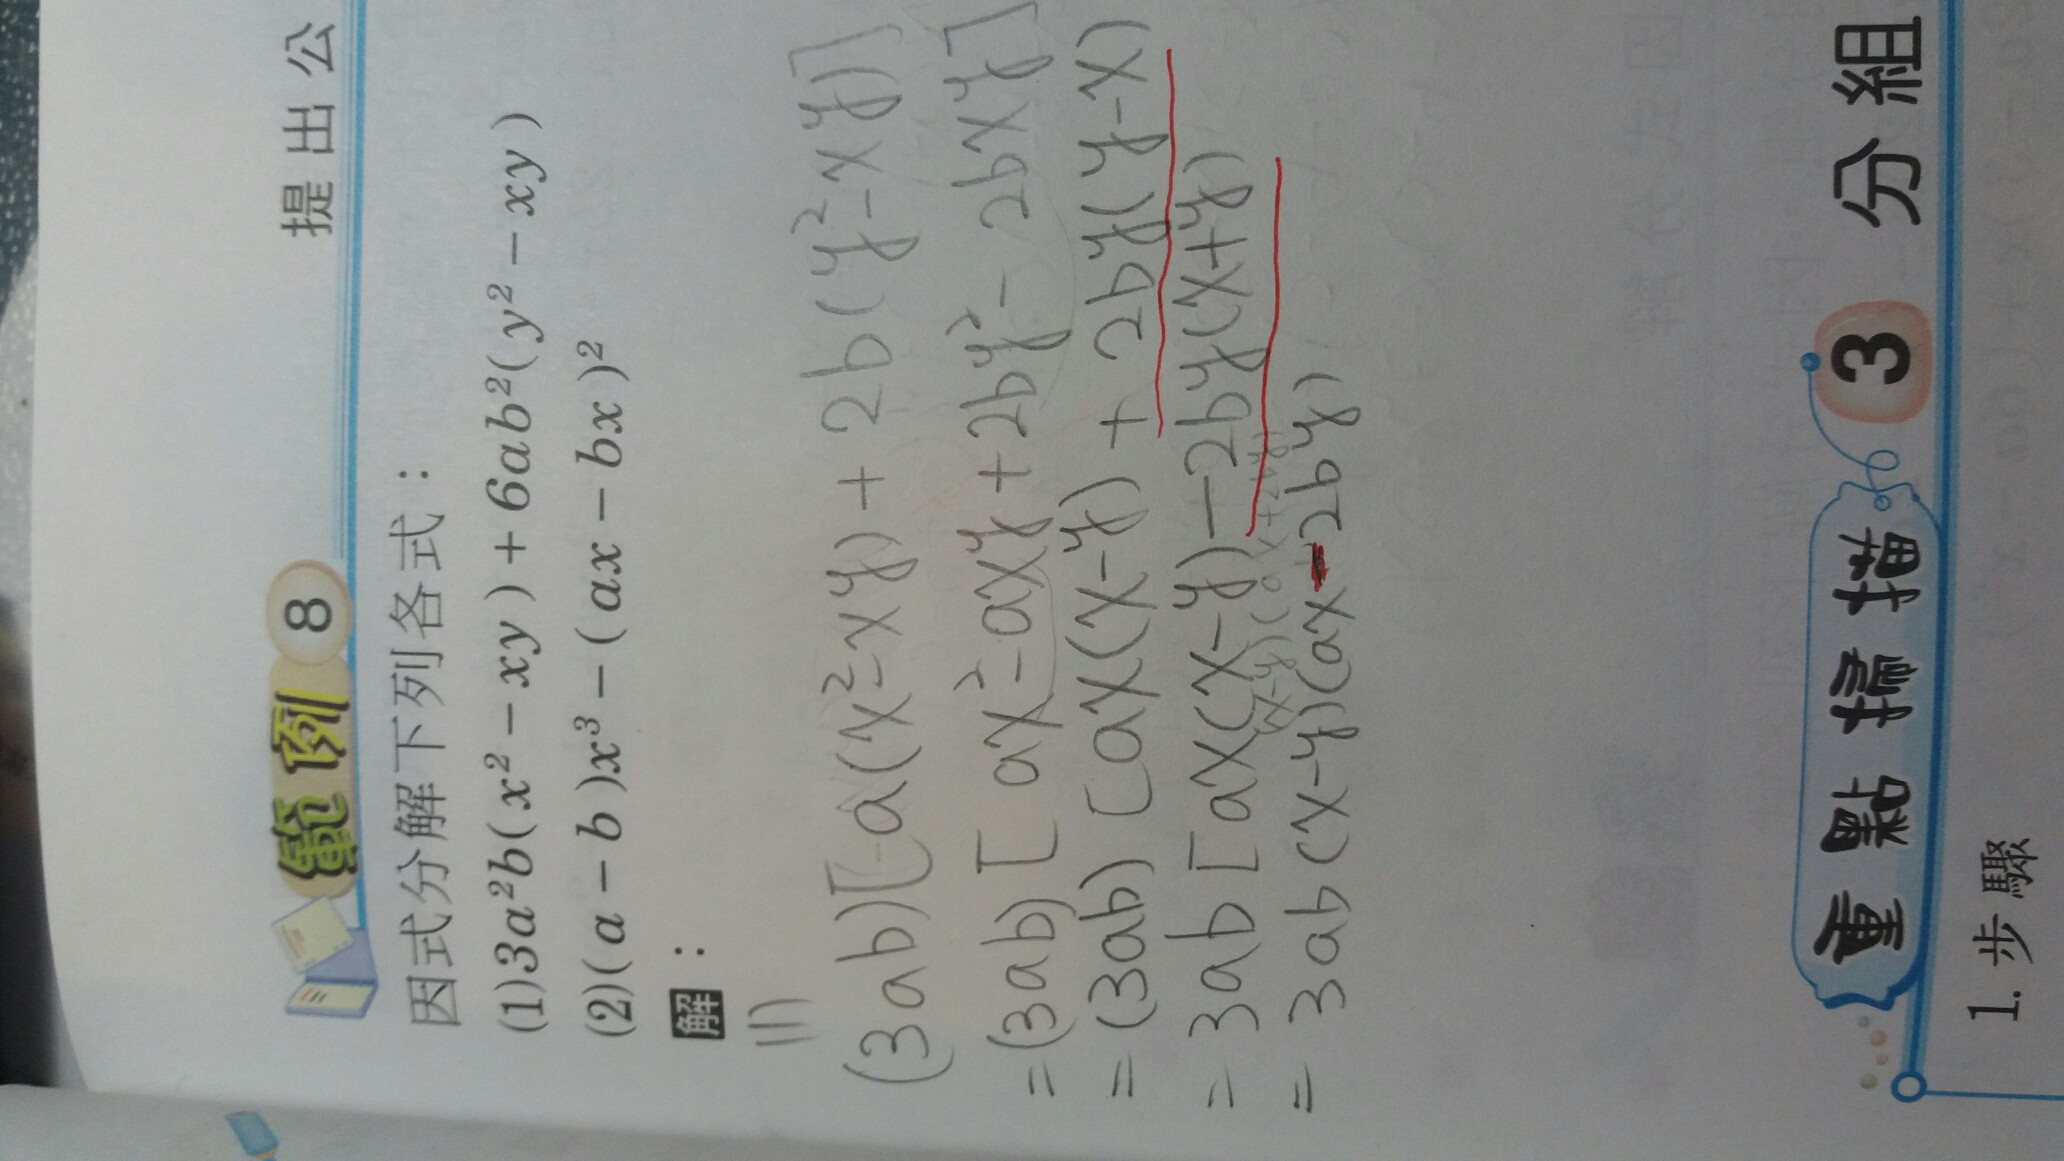 提出公
範例 8
因式分解下列各式：
(1)3a²b(x²-xy)+6ab²(y²-xy)
(2)(a-b)x³-(ax-bx)²
解：
(1)
(3ab)[a(x²-xy)+2b(y²-xy)]
=(3ab)[ax²-axy+2by²-2bxy]
=(3ab)[ax(x-y)+2by(y-x)
=3ab[ax(x-y)-2by(x+y)
=3ab(x-y)(ax-2by)
重點掃描 3 分組
1. 步驟